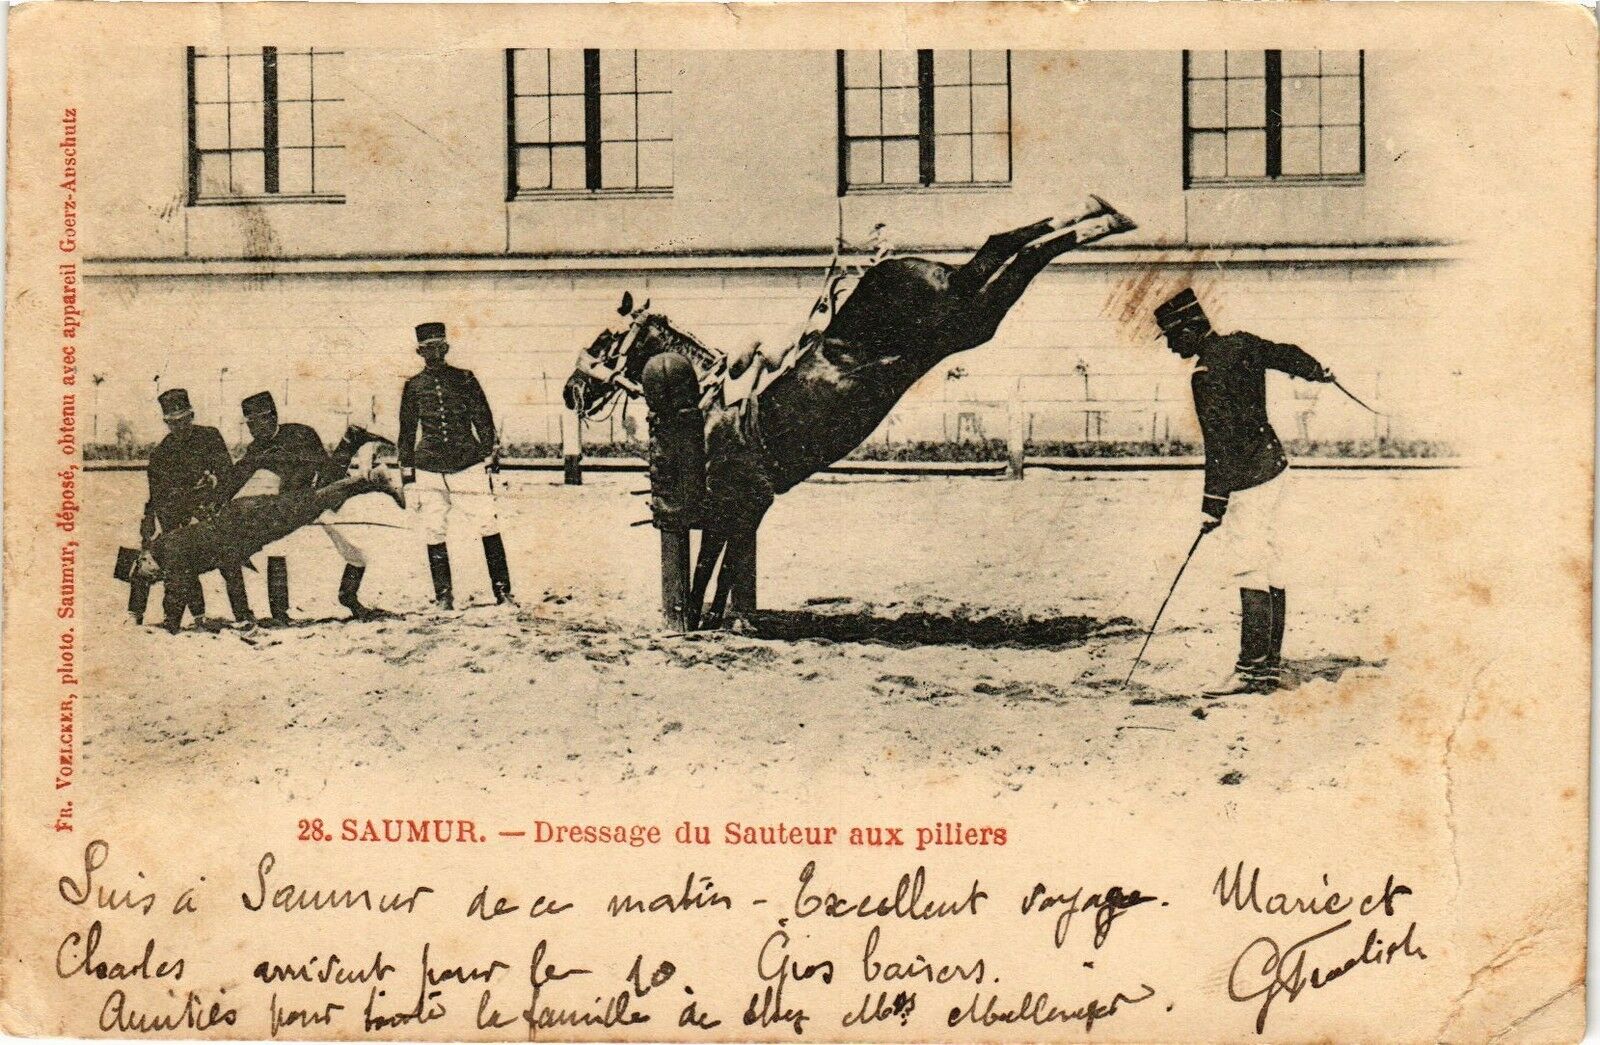 FR. VOELCKER, photo. Saumur, déposé, obtenu avec appareil Goerz-Anschutz
28. SAUMUR. — Dressage du Sauteur aux piliers
Suis à Saumur de ce matin - Excellent voyage. Marie et
Charles arrivent pour le 10. Gros baisers.
Amitiés pour toute la famille de chez